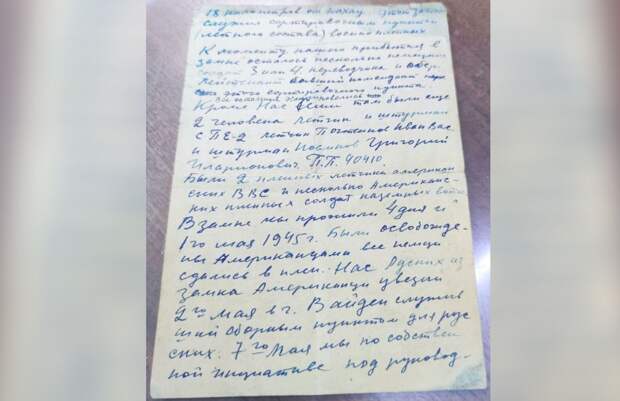 18 километров от Дахау. Этот Замок
служил сортировочным пунктом
(летного состава) военнопленных
К моменту нашего прибытия в
Замке осталось несколько немецких
солдат 3 или 4 переводчика и обер
Лейтенант бывший комендант
этого сортировочного пункта.
Кроме Нас там были еще
2 человека летчик и штурман
с ПЕ-2 летчик Иван Вас
и штурман Григорий
Иларионович П.П. 40410
Были 2 пленных летчика американ
ских ВВС и несколько Американс-
ких пленных солдат наземных
В замке мы прожили 4 дня и
1го мая 1945 г. Были освобожде-
ны Американцами все немцы
сдались в плен. Нас Русских из
Замка Американцы увезли
2го Мая в г. Вайден служив
ший сборным пунктом для рус
ских. 7го Мая мы по собствен
ной инициативе под руковод-